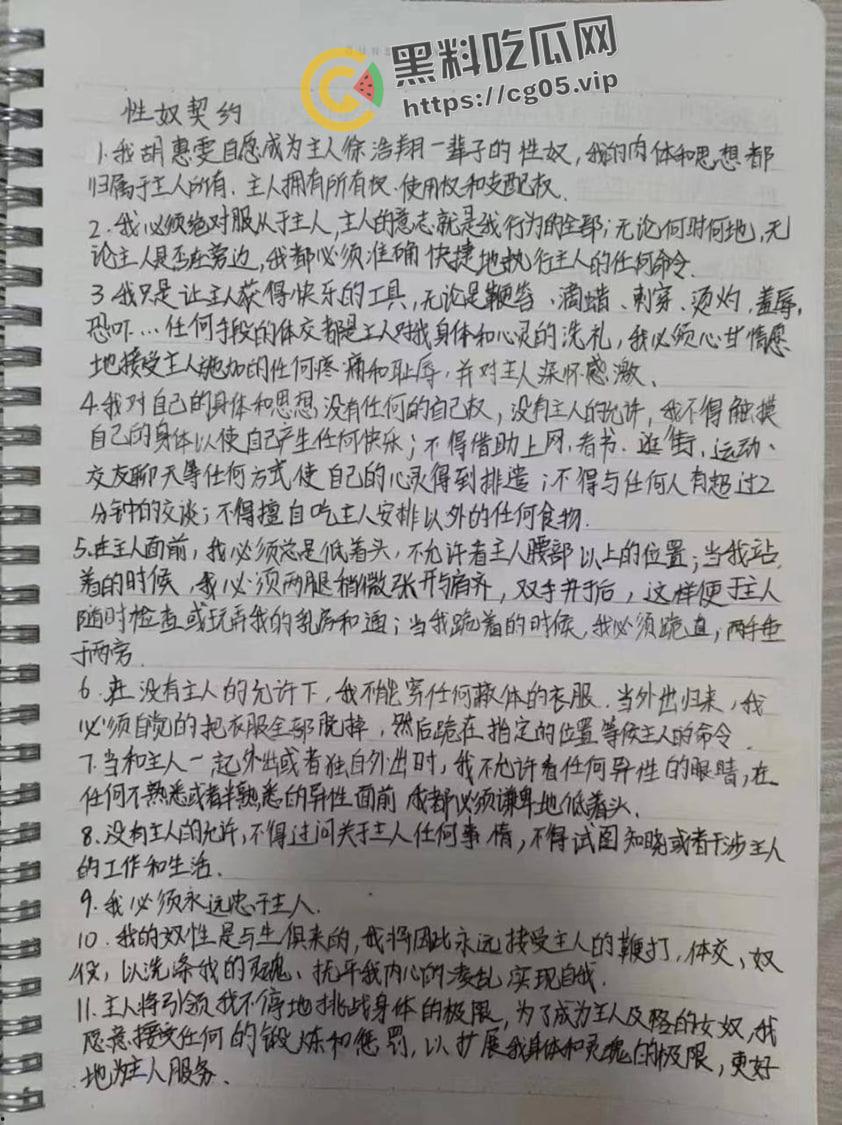 黑料吃瓜网
https://cg05.vip
性奴契约
1.我[姓名]自愿成为主人[姓名]一辈子的性奴,我的肉体和思想都
归属于主人所有.主人拥有所有权、使用权和支配权.
2.我必须绝对服从于主人,主人的意志就是我行为的全部;无论何时何地,无
论主人是否在旁边,我都必须准确快捷地执行主人的任何命令.
3.我只是让主人获得快乐的工具,无论是鞭笞、滴蜡、刺穿、烫灼,羞辱,
恐吓...任何手段的体交都是主人对我身体和心灵的洗礼,我必须心甘情愿
地接受主人施加的任何疼痛和耻辱,并对主人深怀感激、
4.我对自己的身体和思想没有任何的自己权,没有主人的允许,我不得触摸
自己的身体以使自己产生任何快乐;不得借助上网.看书.逛街,运动、
交友聊天等任何方式使自己的心灵得到排遣;不得与任何人有超过2
分钟的交谈;不得擅自吃主人安排以外的任何食物.
5.在主人面前,我必须总是低着头,不允许看主人腰部以上的位置;当我站
着的时候,我必须两腿稍微张开与肩齐,双手并于后,这样便于主人
随时检查或玩弄我的乳房和通;当我跪着的时候,我必须跪直,两手垂
于两旁.
6.在没有主人的允许下,我不能穿任何蔽体的衣服.当外出归来,我
必须自觉的把衣服全部脱掉,然后跪在指定的位置等候主人的命令.
7.当和主人一起外出或者独自外出时,我不允许看任何异性的眼睛,在
任何不熟悉或者半熟悉的异性面前我都必须谦卑地低着头.
8.没有主人的允许,不得过问关于主人任何事情,不得试图知晓或者干涉主人
的工作和生活.
9.我必须永远忠于主人.
10.我的奴性是与生俱来的,我将因此永远接受主人的鞭打,体交、奴
役,以洗涤我的灵魂、抚平我内心的凌乱,实现自我.
11.主人将引领我不停地挑战身体的极限,为了成为主人及格的女奴,我
愿意接受任何的锻炼和惩罚,以扩展我身体和灵魂的极限,更好
地为主人服务.